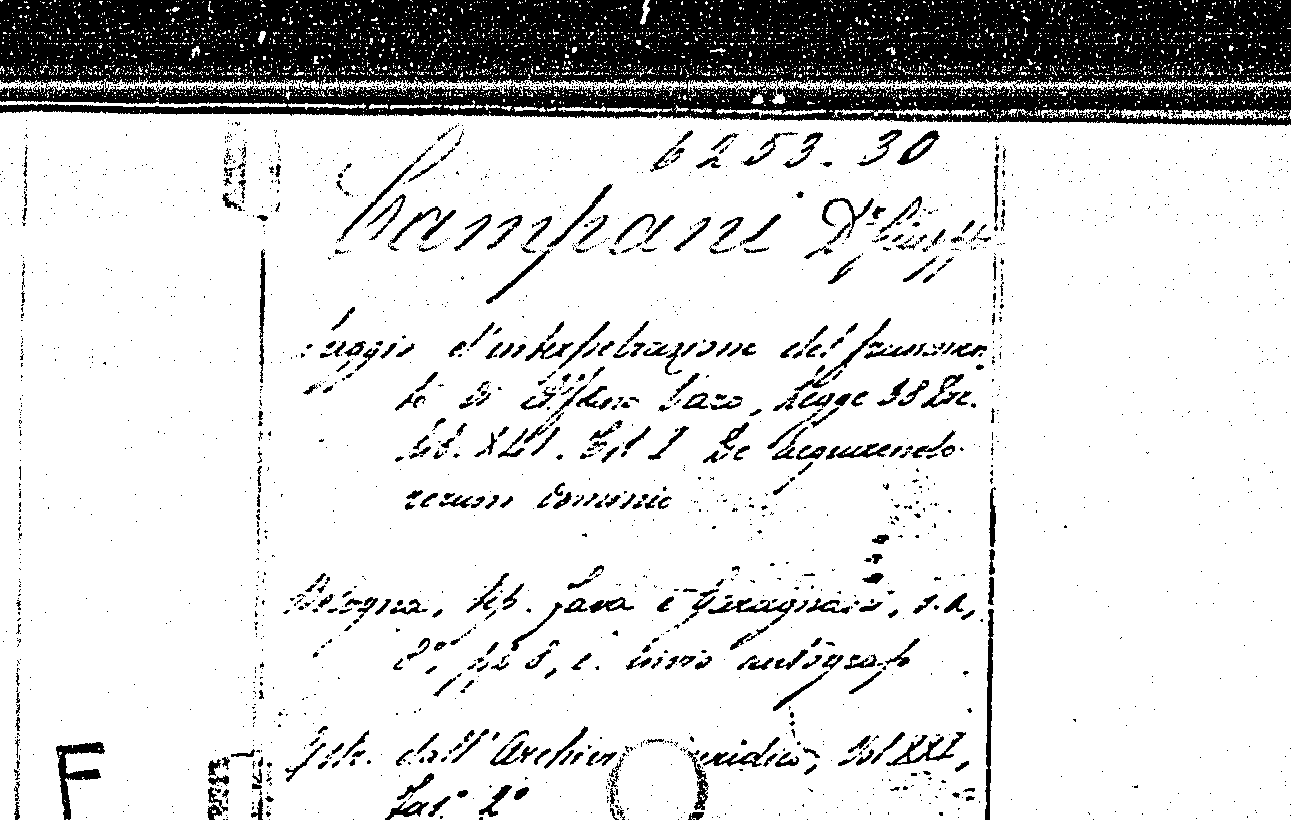 6253. 30
Campani Dr Giusepp
Saggio d'interpetrazione del frammen
to di Alfeno Varo, Legge 38 Dig.
Lib. XLI. Tit I De acquirendo
rerum dominio
Bologna, tip. Fava e Garagnani, s.a,
8°, pp 8, c. invio autografo
Estr. dall'Archivio giuridico, Vol XXI,
Fasc. 2°
F